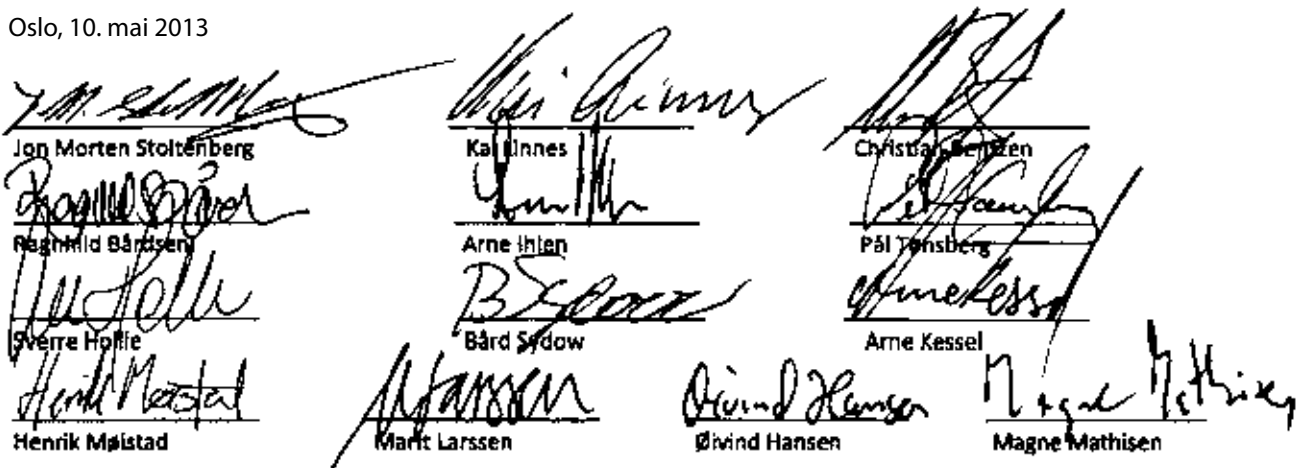 Oslo, 10. mai 2013
Jon Morten Stoltenberg Kai Linnes Christian Berntzen
Ragnhild Bårdsen Arne Ihlen Pål Tønsberg
Sverre Hoffe Bård Sydow Arne Kessel
Henrik Mølstad Marit Larssen Øivind Hansen Magne Mathisen